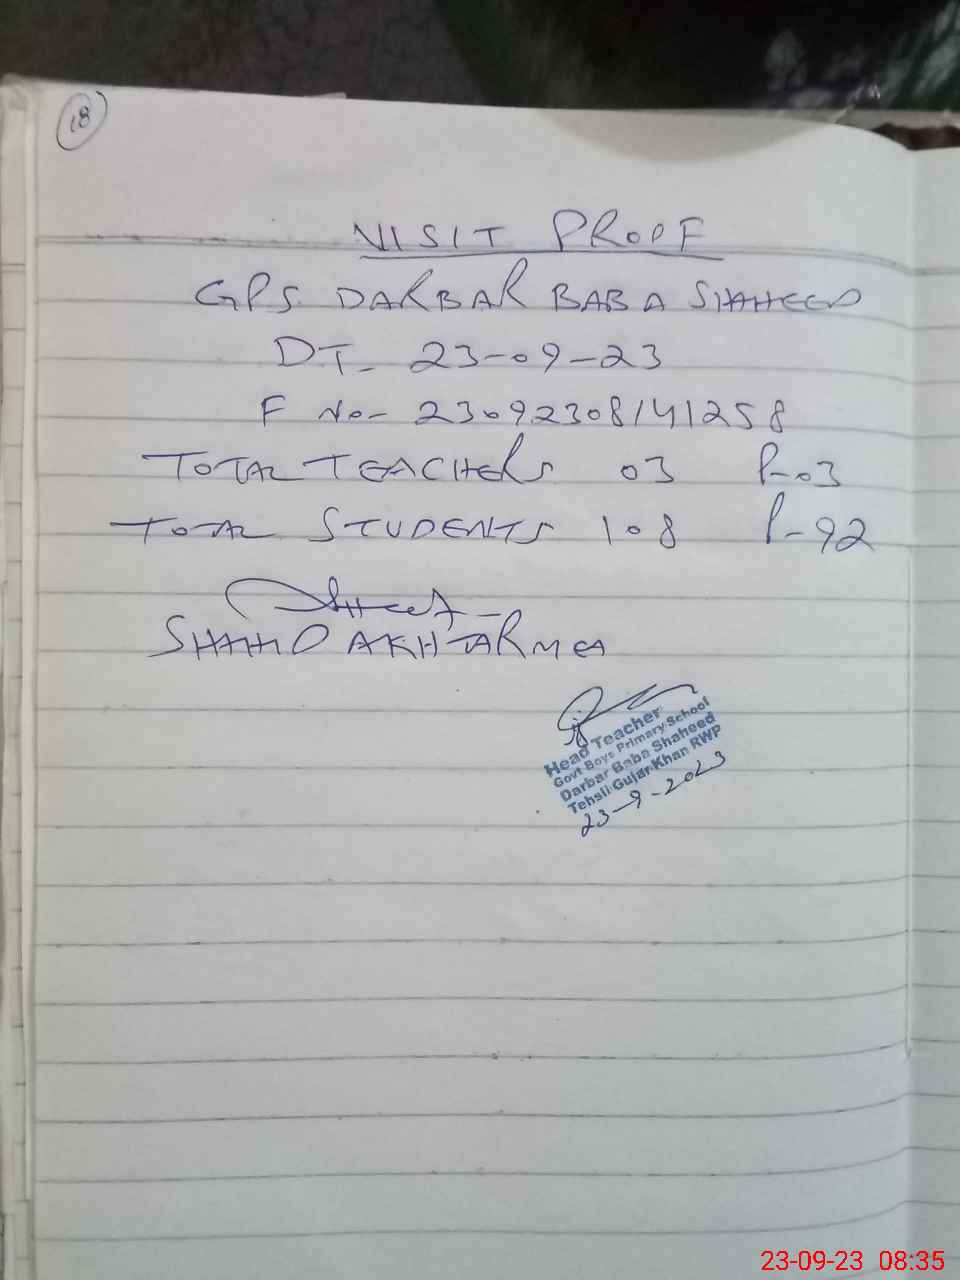 18
VISIT PROOF
GPS DARBAR BABA SHAHEED
DT- 23-09-23
F No- 23092308141258
TOTAL TEACHERS 03 P-03
TOTAL STUDENTS 108 P-92
SHAHID AKHTAR MEA
Head Teacher
Govt Boys Primary School
Darbar Baba Shaheed
Tehsil Gujar Khan RWP
23-9-2023
23-09-23 08:35